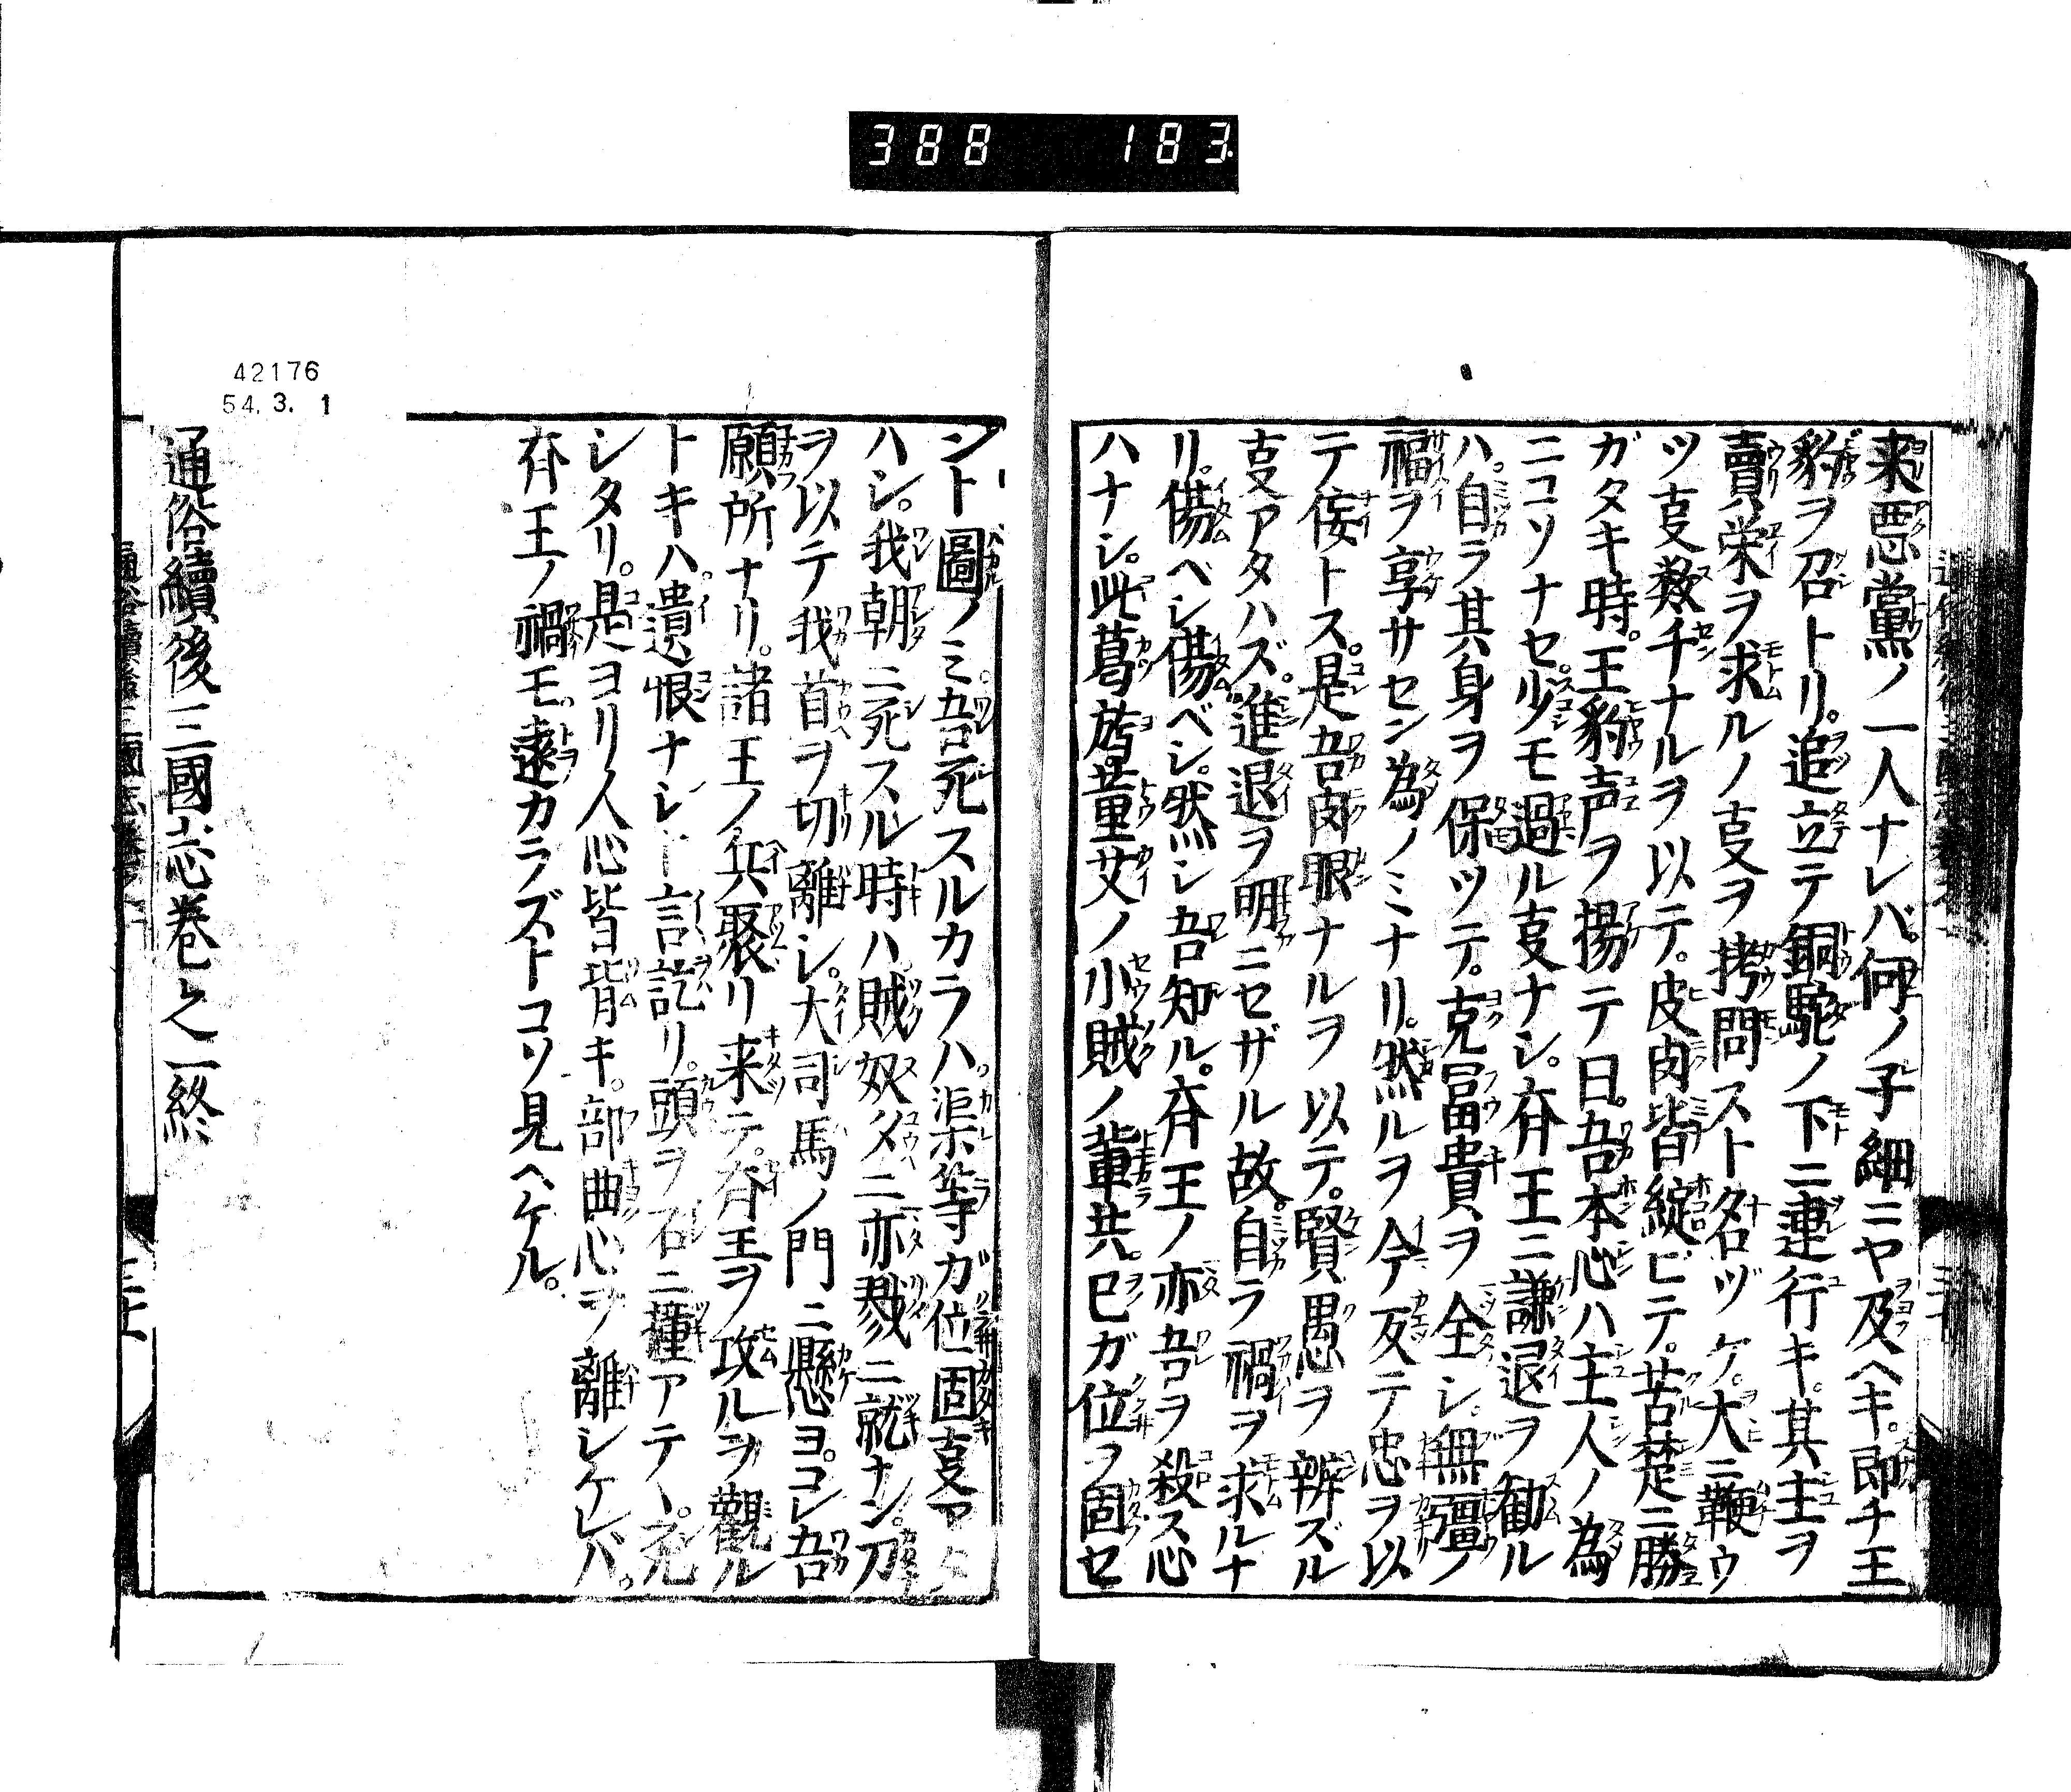 388 183
来悪黨ノ一人ナレバ。何ノ子細ニヤ及ヘキ。即チ王
豹ヲ召トリ。追立テ銅駝ノ下ニ連行キ。其主ヲ
賣栄ヲ求ルノ叓ヲ拷問スト名ヅケ。大ニ鞭ウ
ツ叓数千ナルヲ以テ。皮肉皆綻ビテ。苦楚ニ勝
ガタキ時。王豹声ヲ揚テ曰。吾本心ハ主人ノ為
ニコソナセ。少モ過ル叓ナシ。斉王ニ謙退ヲ勧ル
ハ。自ラ其身ヲ保ツテ。克冨貴ヲ全シ。無疆ノ
福ヲ享サセン為ノミナリ。然ルヲ今反テ忠ヲ以
テ侫トス。是吾肉眼ナルヲ以テ。賢愚ヲ辨ズル
叓アタハズ。進退ヲ明ニセザル故。自ラ禍ヲ求ルナ
リ。傷ベシ傷ベシ。然シ吾知ル。斉王ノ亦吾ヲ殺ス心
ハナシ。此葛旟董艾ノ小賊ノ輩共。巳ガ位ヲ固セ
ント圖ノミ。吾死スルカラハ。渠等ガ位固叓アタ
ハシ。我朝ニ死スル時ハ。賊奴タニ亦戮ニ就ナン。刀
ヲ以テ我首ヲ切離シ。大司馬ノ門ニ懸ヨ。コレ吾
願所ナリ。諸王ノ兵聚リ来テ。斉王ヲ攻ルヲ觀ル
トキハ。遺恨ナシト言訖リ。頭ヲ石ニ撞アテヽ。死
シタリ。是ヨリ人心皆背キ。部曲心ヲ離シケレバ。
斉王ノ禍モ。遠カラズトコソ見ヘケル。
通俗續後三國志巻之一終
42176
54. 3. 1